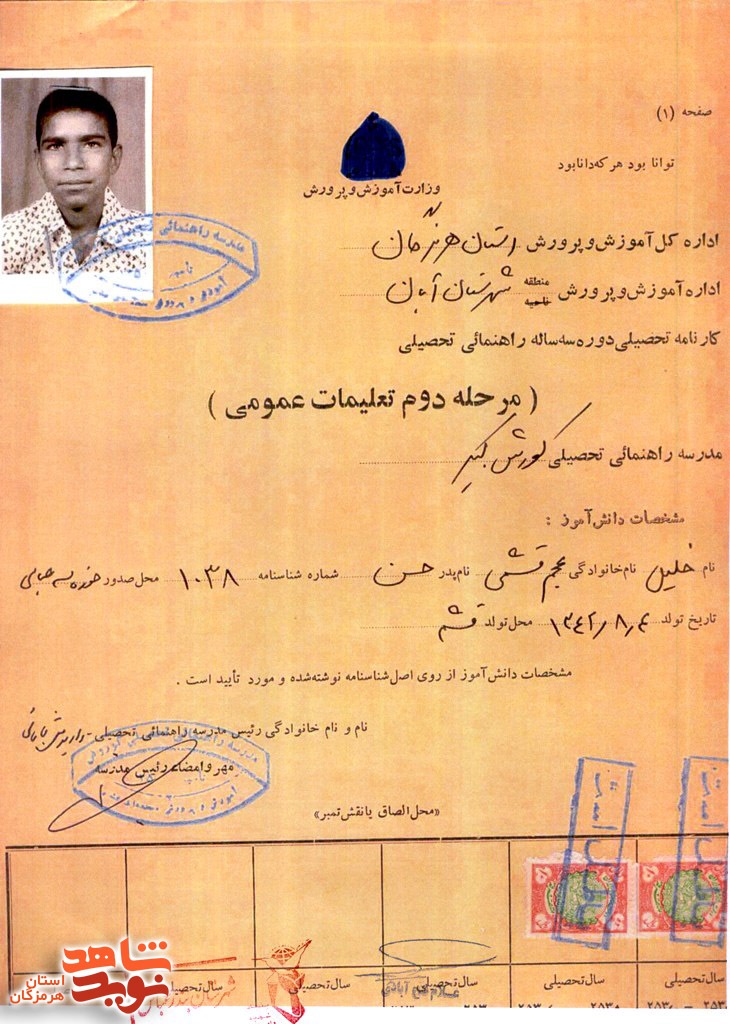 صفحه (۱)
توانا بود هر که دانا بود
وزارت آموزش و پرورش
اداره کل آموزش و پرورش استان هرمزگان
اداره آموزش و پرورش منطقه ناحیه شهرستان
کارنامه تحصیلی دوره سه ساله راهنمائی تحصیلی
(مرحله دوم تعلیمات عمومی)
مدرسه راهنمائی تحصیلی کورش کبیر
مشخصات دانش آموز :
نام خلیل نام خانوادگی قشمی نام پدر حسن شماره شناسنامه ۱۰۳۸ محل صدور
تاریخ تولد ۱۳۴۲/۸/۴ محل تولد قشم
مشخصات دانش آموز از روی اصل شناسنامه نوشته شده و مورد تأیید است .
نام و نام خانوادگی رئیس مدرسه راهنمائی تحصیلی
مهر و امضاء رئیس مدرسه
«محل الصاق یا نقش تمبر»
باطل شد
باطل شد
سال تحصیلی
سال تحصیلی
سال تحصیلی
سال تحصیلی
سال تحصیلی
نوید شاهد
استان هرمزگان